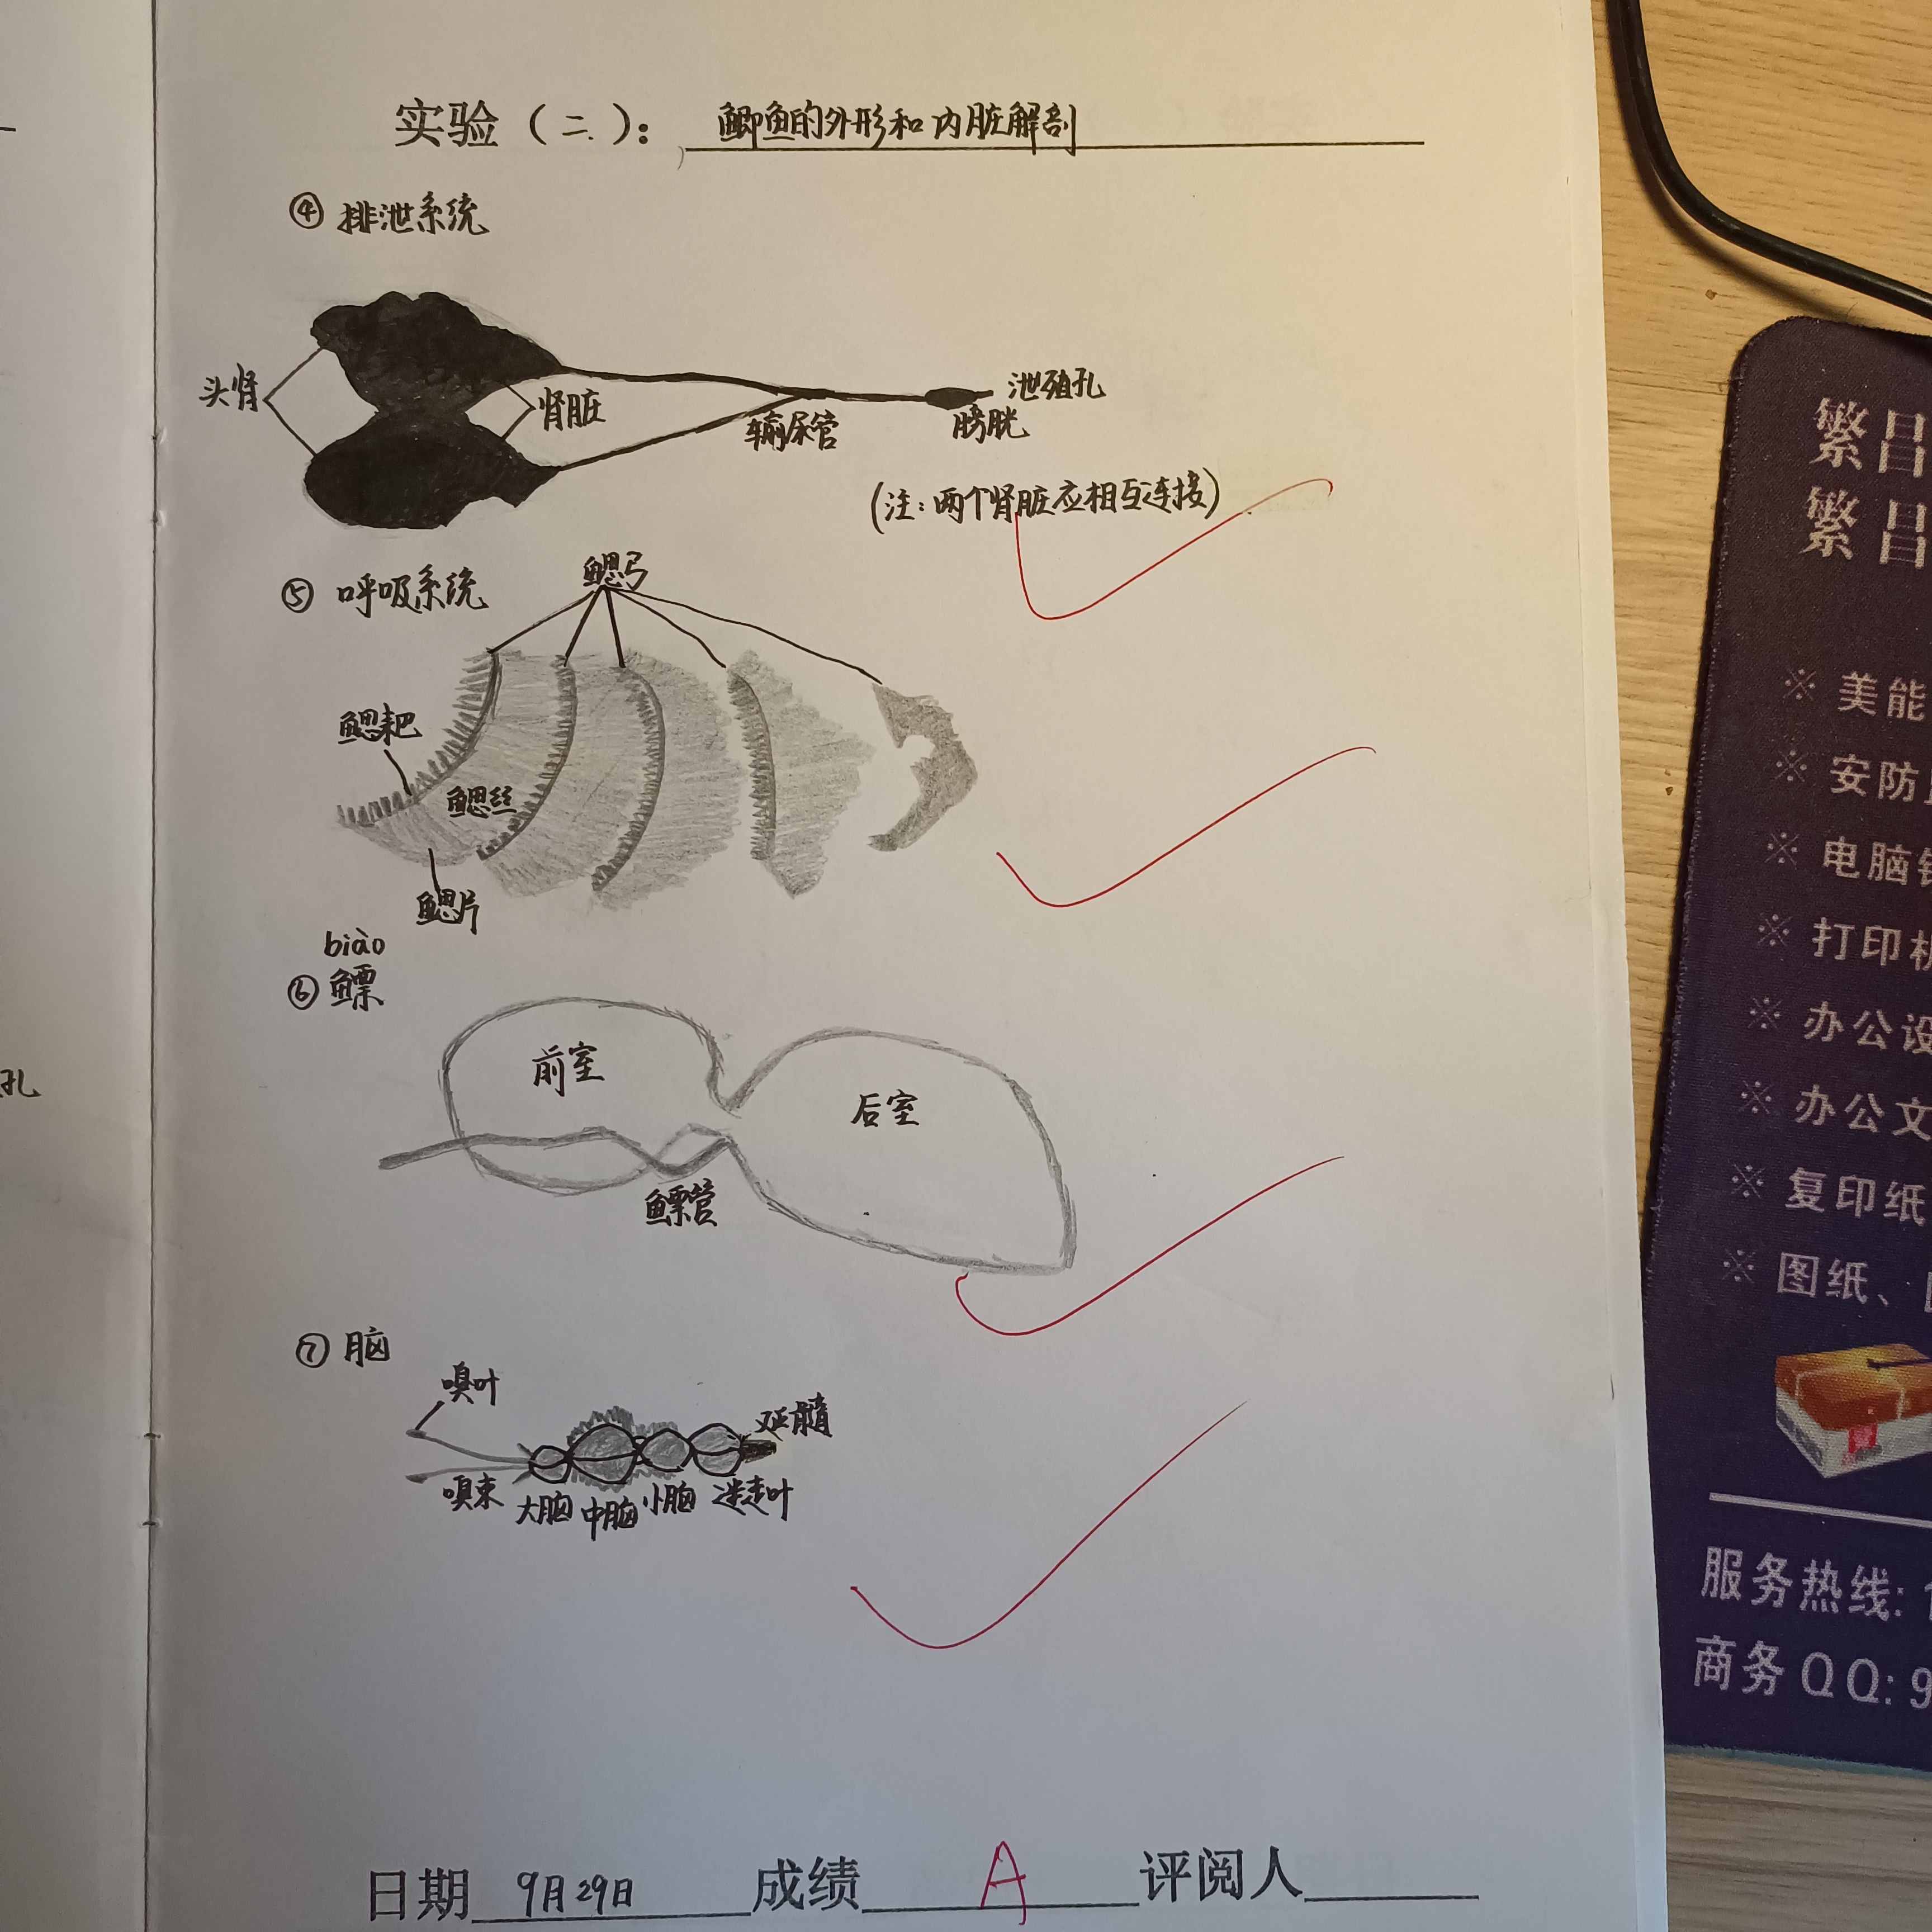 实验（二）：鲫鱼的外形和内脏解剖
④ 排泄系统
头肾
肾脏
输尿管
膀胱
泄殖孔
(注：两个肾脏应相互连接)
⑤ 呼吸系统
鳃弓
鳃耙
鳃丝
鳃片
biào
⑥ 鳔
前室
后室
鳔管
⑦ 脑
嗅叶
嗅束
大脑
中脑
小脑
迷走叶
延髓
日期 9月29日 成绩 A 评阅人
孔
繁昌
繁昌
※ 美能
※ 安防
※ 电脑
※ 打印机
※ 办公设
※ 办公文
※ 复印纸
※ 图纸、
服务热线:
商务QQ: 9